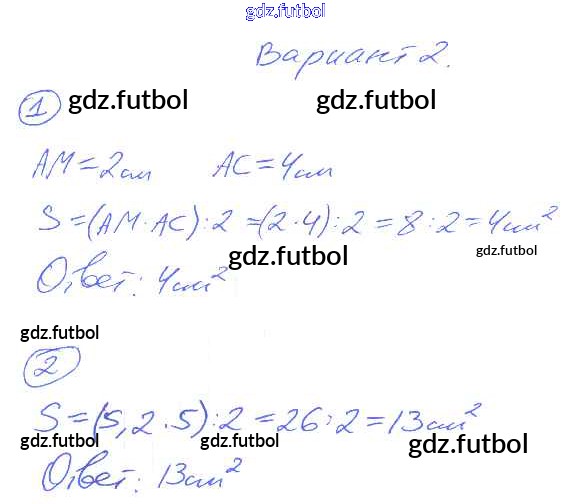 gdz.futbol
Вариант 2.
1 gdz.futbol gdz.futbol
AM=2см AC=4см
S=(AM·AC):2=(2·4):2=8:2=4см²
gdz.futbol gdz.futbol
Ответ: 4см²
gdz.futbol
2
S=(5,2·5):2=26:2=13см²
gdz.futbol gdz.futbol gdz.futbol
Ответ: 13см²